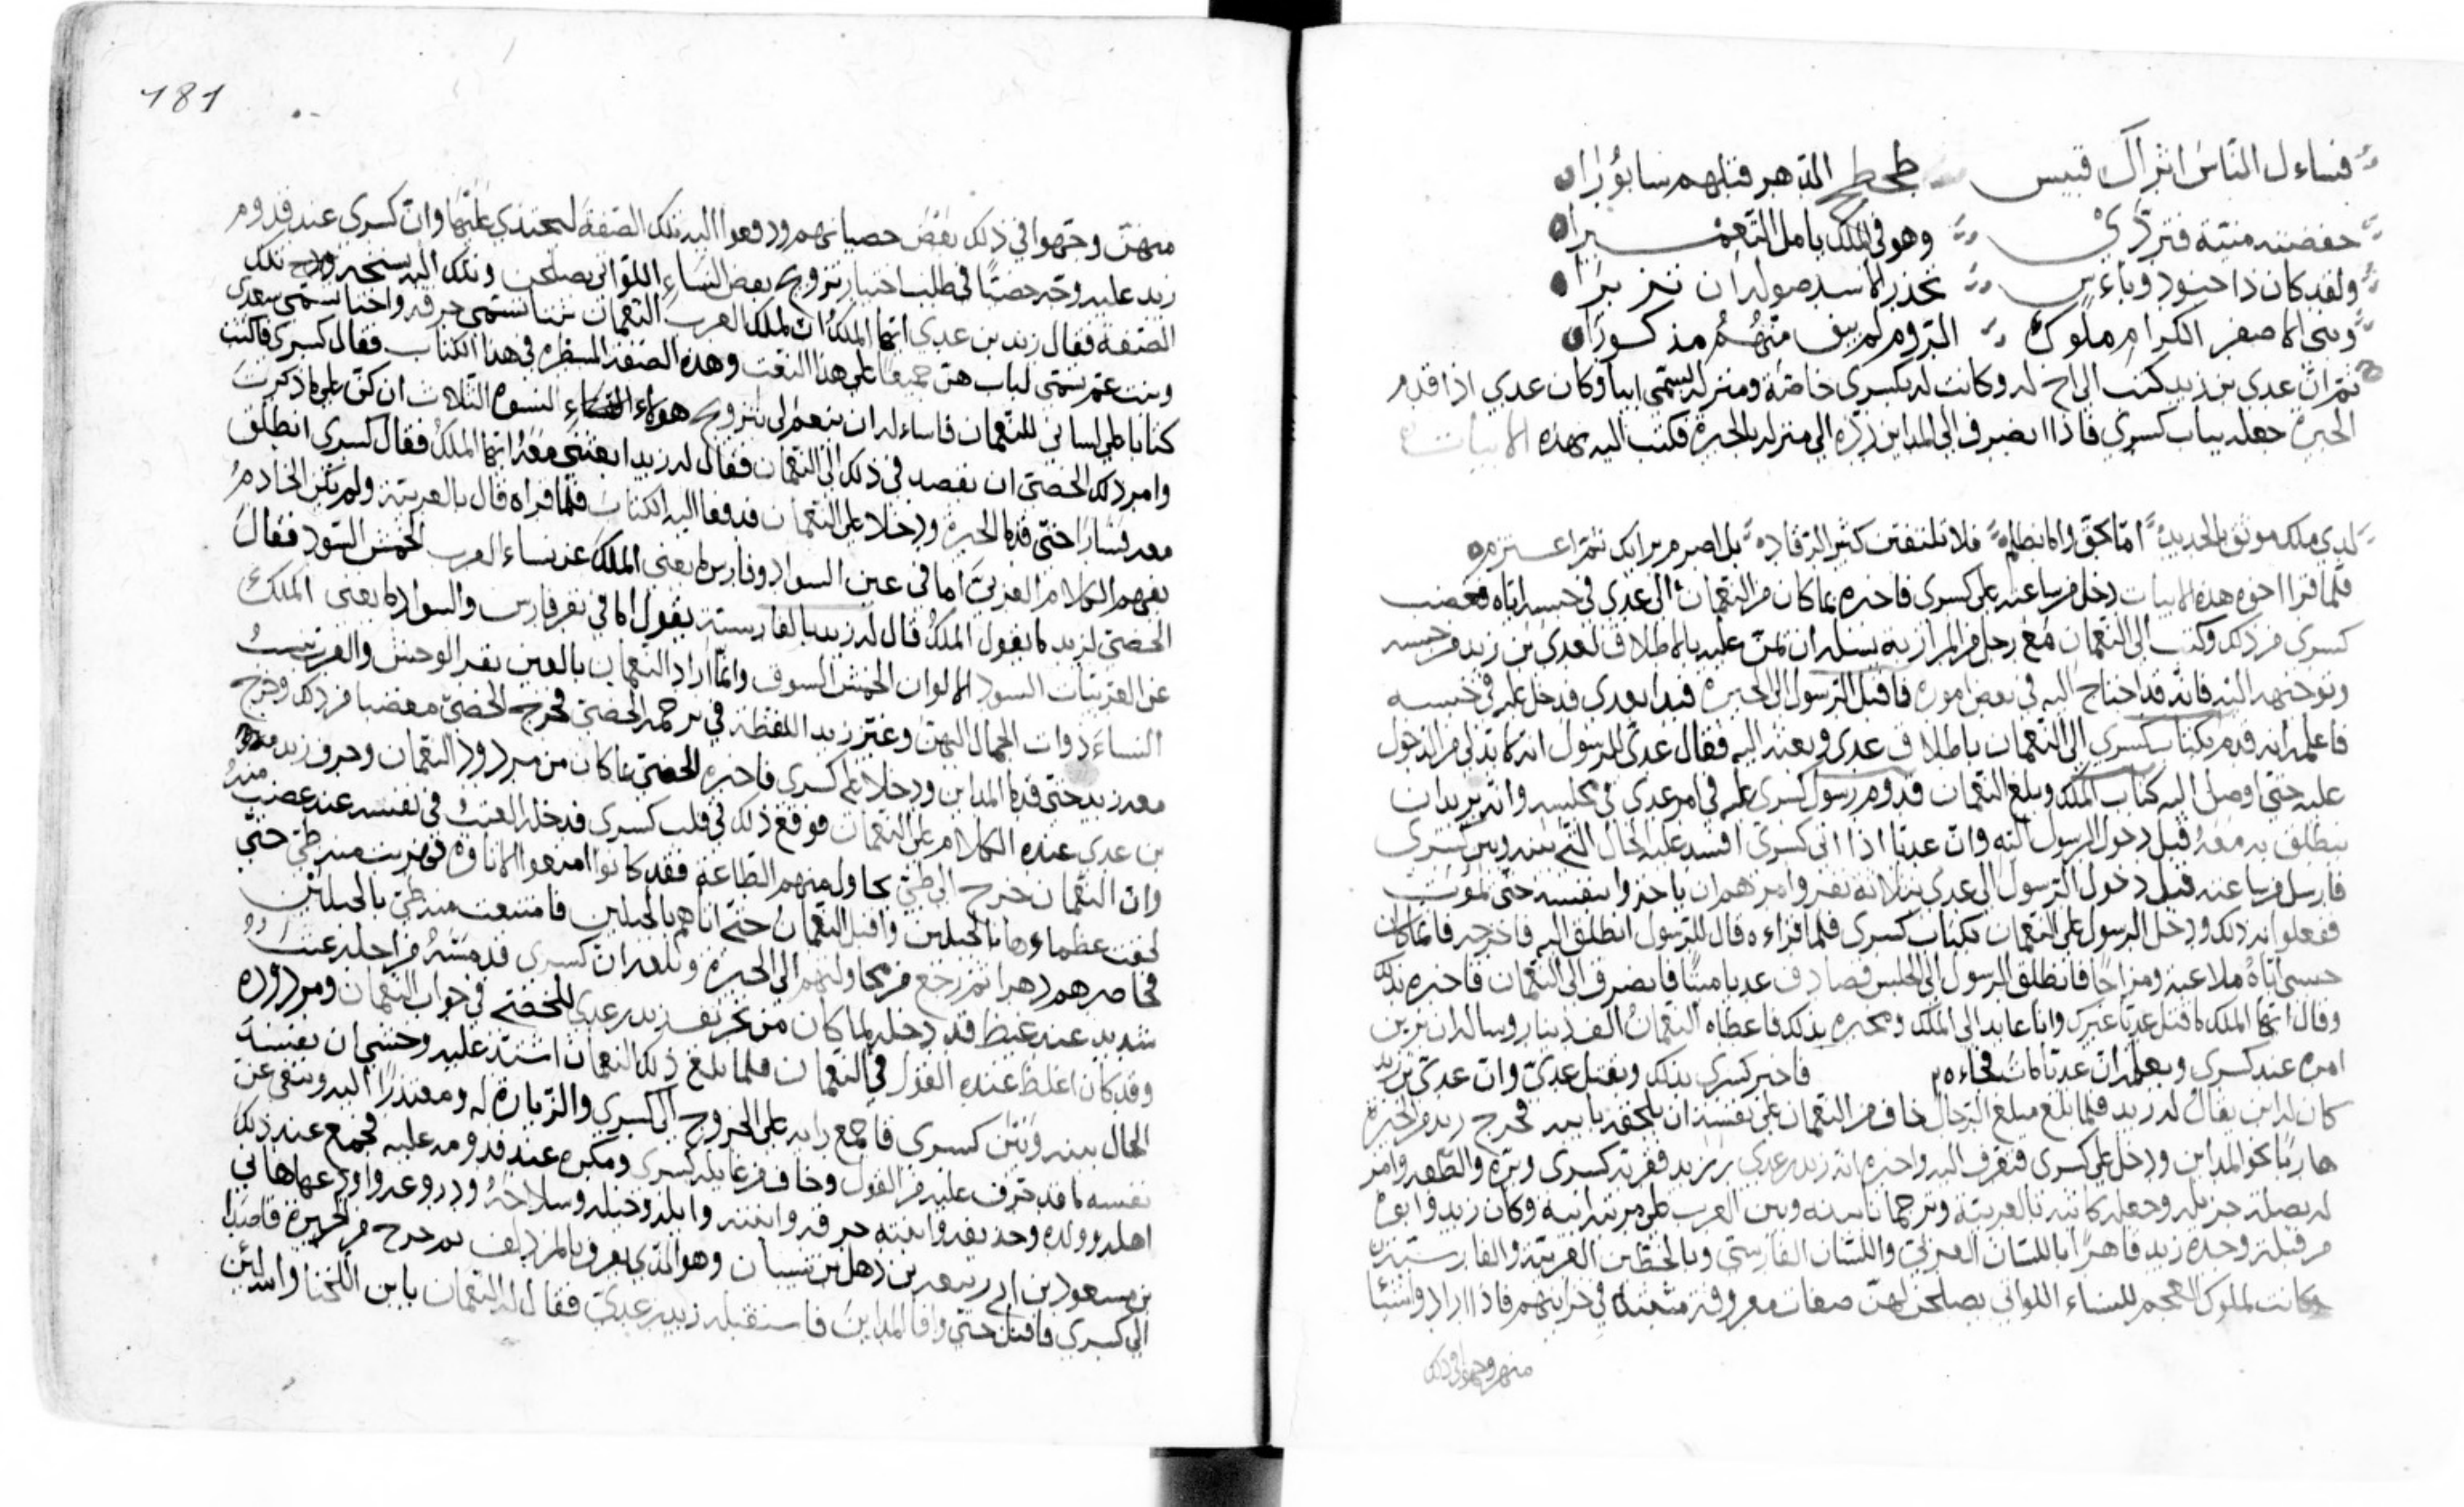 فساءل الناس اين آل قبيس طحطح الدهر قبلهم سابورا
خفضته منية فتردى وهو في الملك يامل التعميرا
ولقد كان ذا جنود وباءس تحذر الاسد صولة ان تزيرا
وبنى الاصفر الكرام ملوك الروم لم يبق منهم مذكورا
ثم ان عدي بن زيد كتب الى اخ له وكانت له بكسرى خاصة ومنزلة يسمى ابيا وكان عدي اذا قدم
الحيرة جعله بباب كسرى فاذا انصرف الى المداين رده الى منزله بالحيرة فكتب اليه بهذه الابيات
لدى ملك موثق بالحديد اما بحق واما بظلم فلا تلتفتن كثير الرقاد بل اصرم برايك ثم اعتزم
فلما قرا اخوه هذه الابيات دخل من ساعته على كسرى فاخبره بما كان من النعمان الى عدي في حبسه اياه فغضب
كسرى من ذلك وكتب الى النعمان مع رجل من المرازبة يسله ان يمن عليه بالاطلاق لعدي بن زيد من حبسه
وتوجيهه اليه فانه قد احتاج اليه في بعض اموره فاقبل الرسول الى الحيرة فبدا بعدي فدخل عليه في حبسه
فاعلمه انه قدم بكتاب كسرى الى النعمان باطلاق عدي وبعثه اليه فقال عدي للرسول انه لا بد لي من الدخول
عليه حتى اوصل اليه كتاب الملك وبلغ النعمان قدوم رسول كسرى عليه في امر عدي في مجلسه وانه يريد ان
ينطلق به معه قبل دخول الرسول اليه وان عديا اذا اتى كسرى افسد عليه الحال التي بينه وبين كسرى
فارسل من ساعته قبل دخول الرسول الى عدي بثلاثة نفر وامرهم ان ياخذوا بنفسه حتى يموت
ففعلوا به ذلك ودخل الرسول على النعمان بكتاب كسرى فلما قراءه قال للرسول انطلق اليه فاخرجه فانما كان
حبسي اياه ملاعبة ومزاحا فانطلق الرسول الى الحبس فصادف عديا ميتا فانصرف الى النعمان فاخبره بذلك
وقال ايها الملك ما قتل عديا غيرك وانا عايد الى الملك ومخبره بذلك فاعطاه النعمان الف دينار وساله ان يزين
امره عند كسرى ويعلمه ان عديا مات فجاءه فاخبر كسرى بذلك وبقتل عدي وان عدي بن زيد
كان له ابن يقال له زيد فلما بلغ مبلغ الرجال خاف من النعمان على نفسه ان يلحقه بابيه فخرج زيد من الحيرة
هاربا نحو المداين ودخل على كسرى فتعرف اليه واخبره انه زيد بن عدي بن زيد فقربه كسرى وبره والطفه وامر
له بصلة جزيلة وجعله كاتبه بالعربية وترجمانا بينه وبين العرب على مرتبة ابيه وكان زيد وابوه
من قبله وجده زيد ماهرا باللسان العربي واللسان الفارسي وبالخطين العربية والفارسية
وكانت لملوك العجم للنساء اللواتي يصلحن لهن صفات معروفة مثبتة في خزاينهم فاذا ارادوا شيئا
منهن وجهوا في ذلك
181
منهن وجهوا في ذلك بعض خصيانهم ودفعوا اليه تلك الصفة ليحتذي عليها وان كسرى عند قدوم
زيد عليه وجه خصيا في طلب اختيار تزويج بعض النساء اللواتي يصلحن وتلك اليه بنسخة تلك
الصفة فقال زيد بن عدي ايها الملك ان لملك العرب النعمان بنتا تسمى حرقة واختا تسمى سعدى
وبنت عم تسمى لباب هن جميعا على هذا النعت وهذه الصفة المسطرة في هذا الكتاب فقال كسرى فاكتب
كتابا على لساني للنعمان فاساله ان ينعم لي بتزويج هولاء النسوة الثلاث ان كن على ما ذكرت
وامر ذلك الخصي ان يقصد في ذلك الى النعمان فقال له زيد ابعثني معه ايها الملك فقال كسرى انطلق
معه فسارا حتى قدما الحيرة ودخلا على النعمان فدفعا اليه الكتاب فلما قراه قال بالعربية ولم يكن الخادم
يفهم الكلام العربي اما في عين السواد وفارس ما يغني الملك عن نساء العرب الحمش السود فقال
الخصي لزيد ما يقول الملك قال له زيد بالفارسية يقول اما في بقر فارس والسواد ما يغني الملك
عن العربيات السود الالوان الحمش السوق وانما اراد النعمان بالعين بقر الوحش والعرب تنسب
النساء ذوات الجمال اليهن وغير زيد اللفظة في ترجمة الخصي فخرج الخصي مغضبا من ذلك وخرج
معه زيد حتى قدما المداين ودخلا على كسرى فاخبره الخصي بما كان من مردود النعمان وحرف زيد
بن عدي عنده الكلام على النعمان فوقع ذلك في قلب كسرى فدخله العتب في نفسه عند غضب منه
وان النعمان خرج الى طي يحاول منهم الطاعة فقد كانوا امنعوا الاتاوة فهربت منه طي حتى
لحقت عظماءها بالجبلين واقبل النعمان حتى اتاهم بالجبلين فامتنعت منه طي بالجبلين
فحاصرهم دهرا ثم رجع من محاولتهم الى الحيرة وبلغه ان كسرى قد مسه من اجله عتب
شديد عند غيظ قد دخله بما كان من تحريف زيد بن عدي للخصي في جواب النعمان ومردوده
وقد كان اغلظ عنده القول في النعمان فلما بلغ ذلك النعمان اشتد عليه وخشي ان يفسد
الحال بينه وبين كسرى فاجمع رايه على الخروج الى كسرى والزيارة له ومعتذرا اليه وينفي عن
نفسه ما قد حرف عليه من القول وخاف من غايلة كسرى ومكره عند قدومه عليه فجمع عند ذلك
اهله وولده وابنته حرقة وابله وخيله وسلاحه ودروعه واودعها هاني
بن مسعود بن ابي ربيعة بن ذهل بن شيبان وهو الذي يعرف بالمزدلف ثم خرج من الحيرة قاصدا
الى كسرى فاقبل حتى وافا المداين فاستقبله زيد بن عدي فقال له النعمان يا بن اللخنا